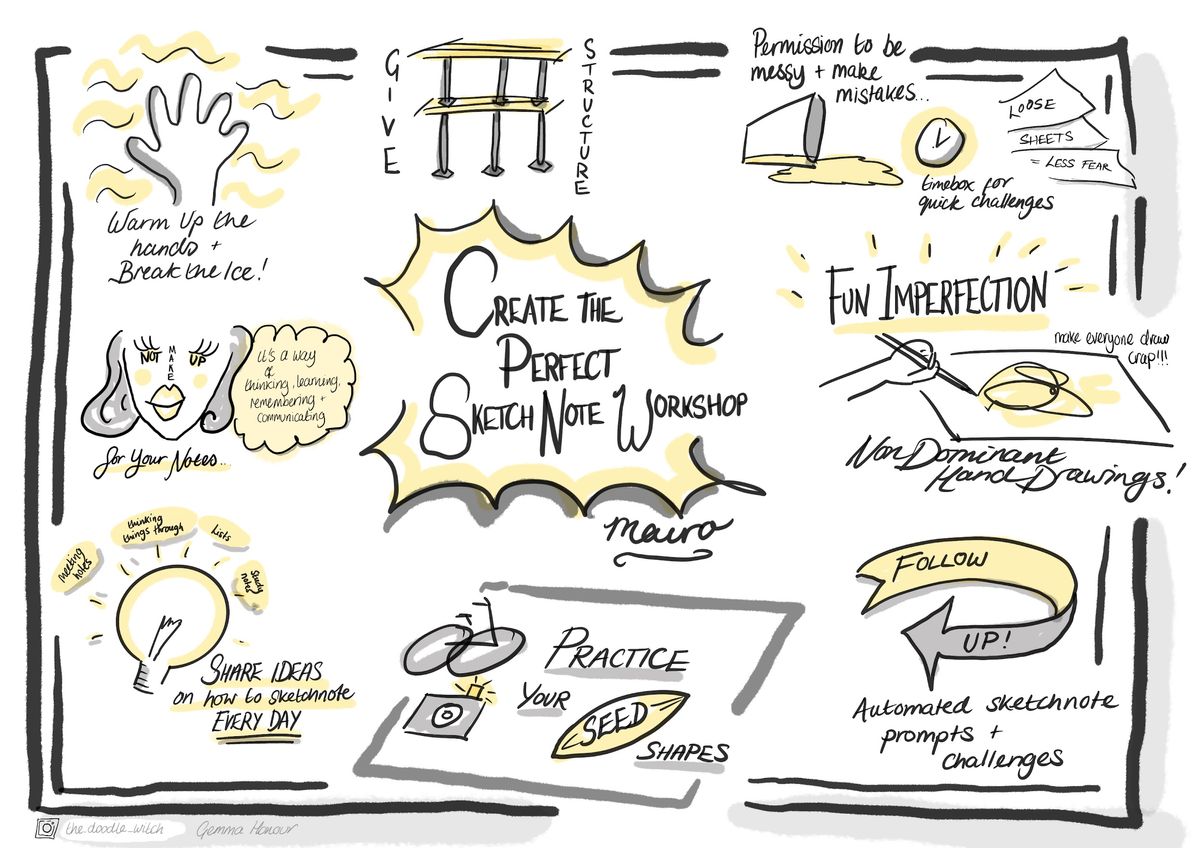 GIVE
STRUCTURE
Permission to be
messy + make
mistakes...
LOOSE
SHEETS
= LESS FEAR
timebox for
quick challenges
Warm Up the
hands +
Break the Ice!
CREATE THE
PERFECT
SKETCH NOTE WORKSHOP
Mauro
FUN IMPERFECTION
make everyone draw
crap!!!
Non Dominant
Hand Drawings!
NOT
MAKE
UP
it's a way
of
thinking, learning,
remembering +
communicating
for Your Notes...
meeting
notes
thinking
things through
Lists
Study
notes
SHARE IDEAS
on how to sketchnote
EVERY DAY
PRACTICE
YOUR
SEED
SHAPES
FOLLOW
UP!
Automated sketchnote
prompts +
challenges
the_doodle_witch
Gemma Honour